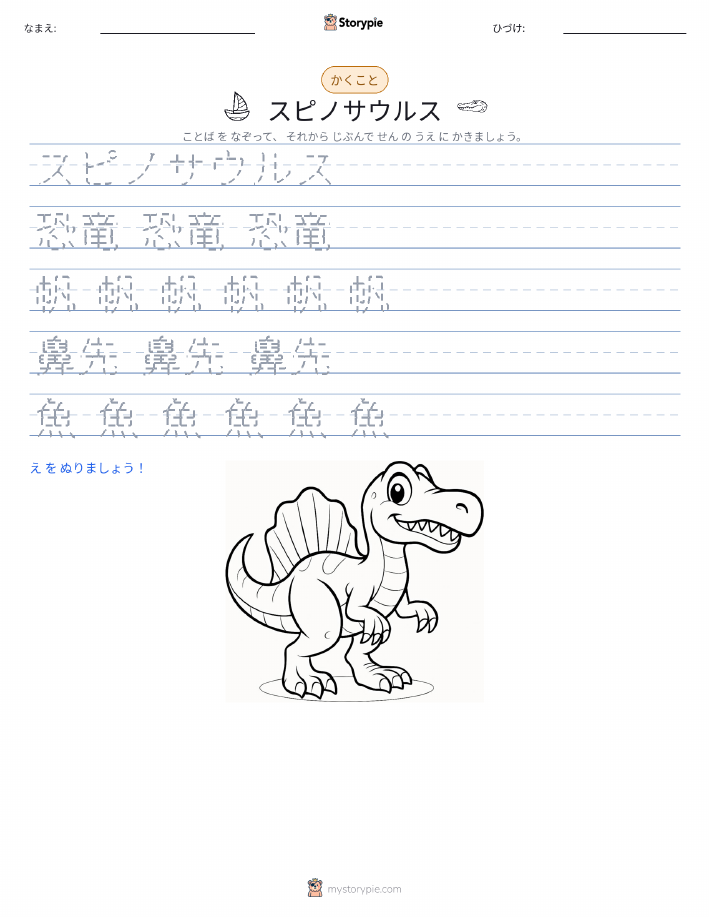 なまえ:
Storypie
ひづけ:
かくこと
スピノサウルス
ことば を なぞって、 それから じぶんで せん の うえ に かきましょう。
スピノサウルス
恐竜 恐竜 恐竜
帆 帆 帆 帆 帆 帆
鼻先 鼻先 鼻先
魚 魚 魚 魚 魚 魚
え を ぬりましょう！
mystorypie.com